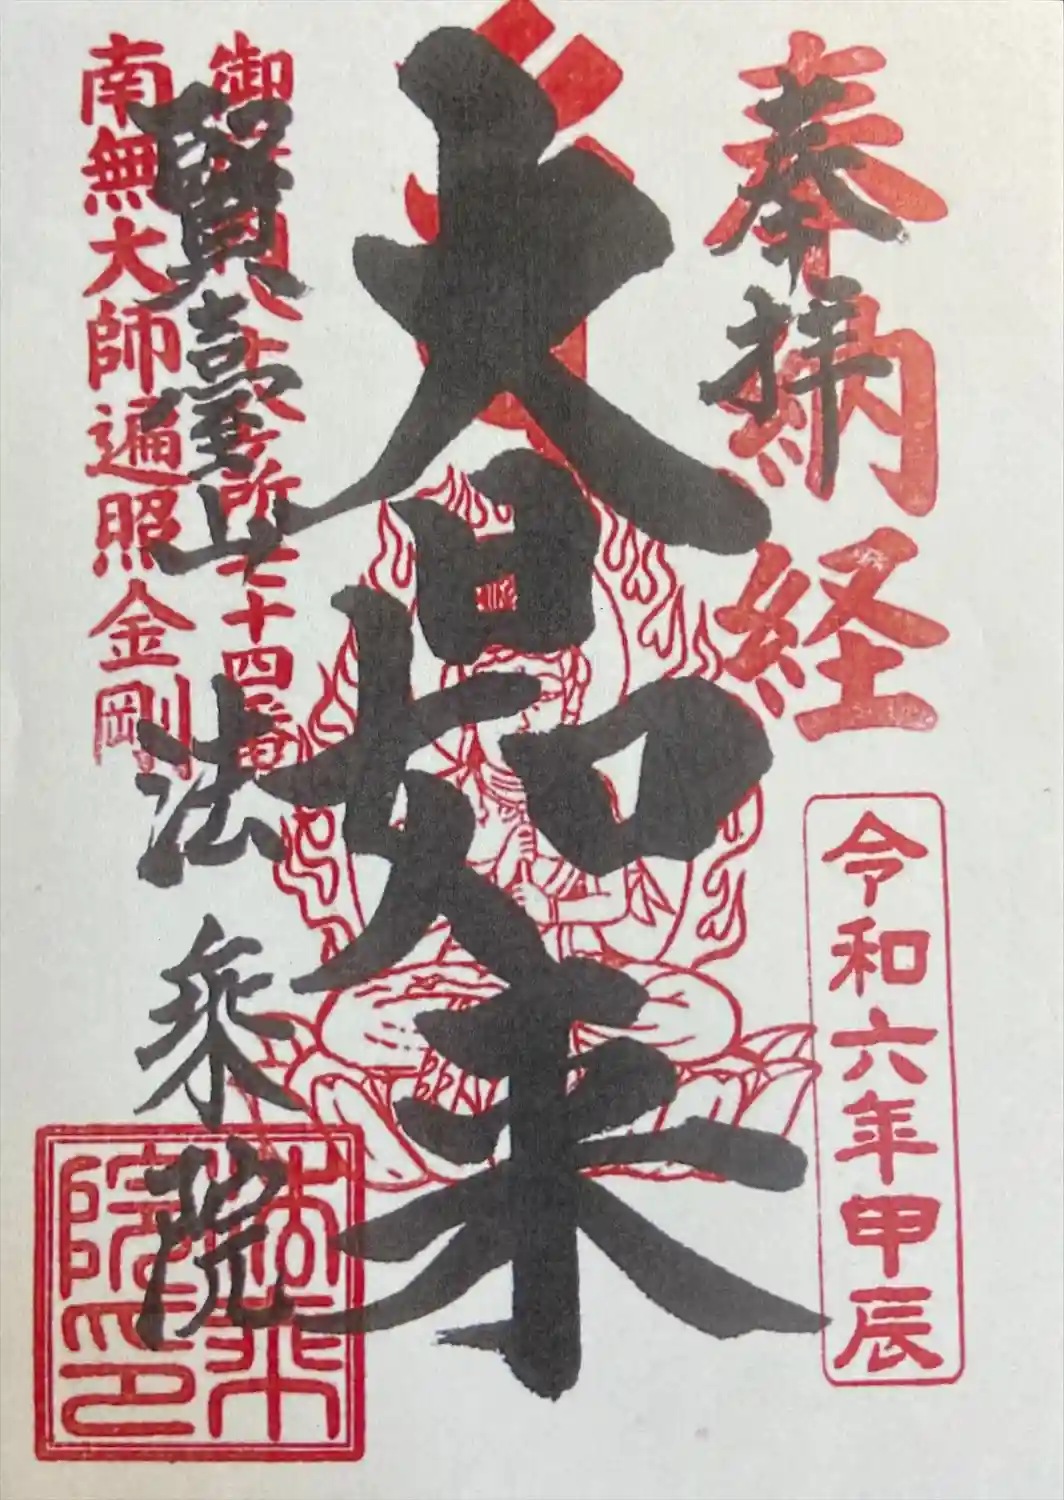 奉拝
奉納経
令和六年甲辰
大日如来
賢臺山
法乗院
御府内八十八ヶ所七十四番
南無大師遍照金剛
法乗院印